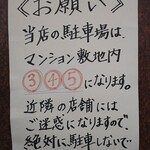 《お願い》
当店の駐車場は、
マンション敷地内
③④⑤になります。
近隣の店舗には
ご迷惑になりますので、
絶対に駐車しないで